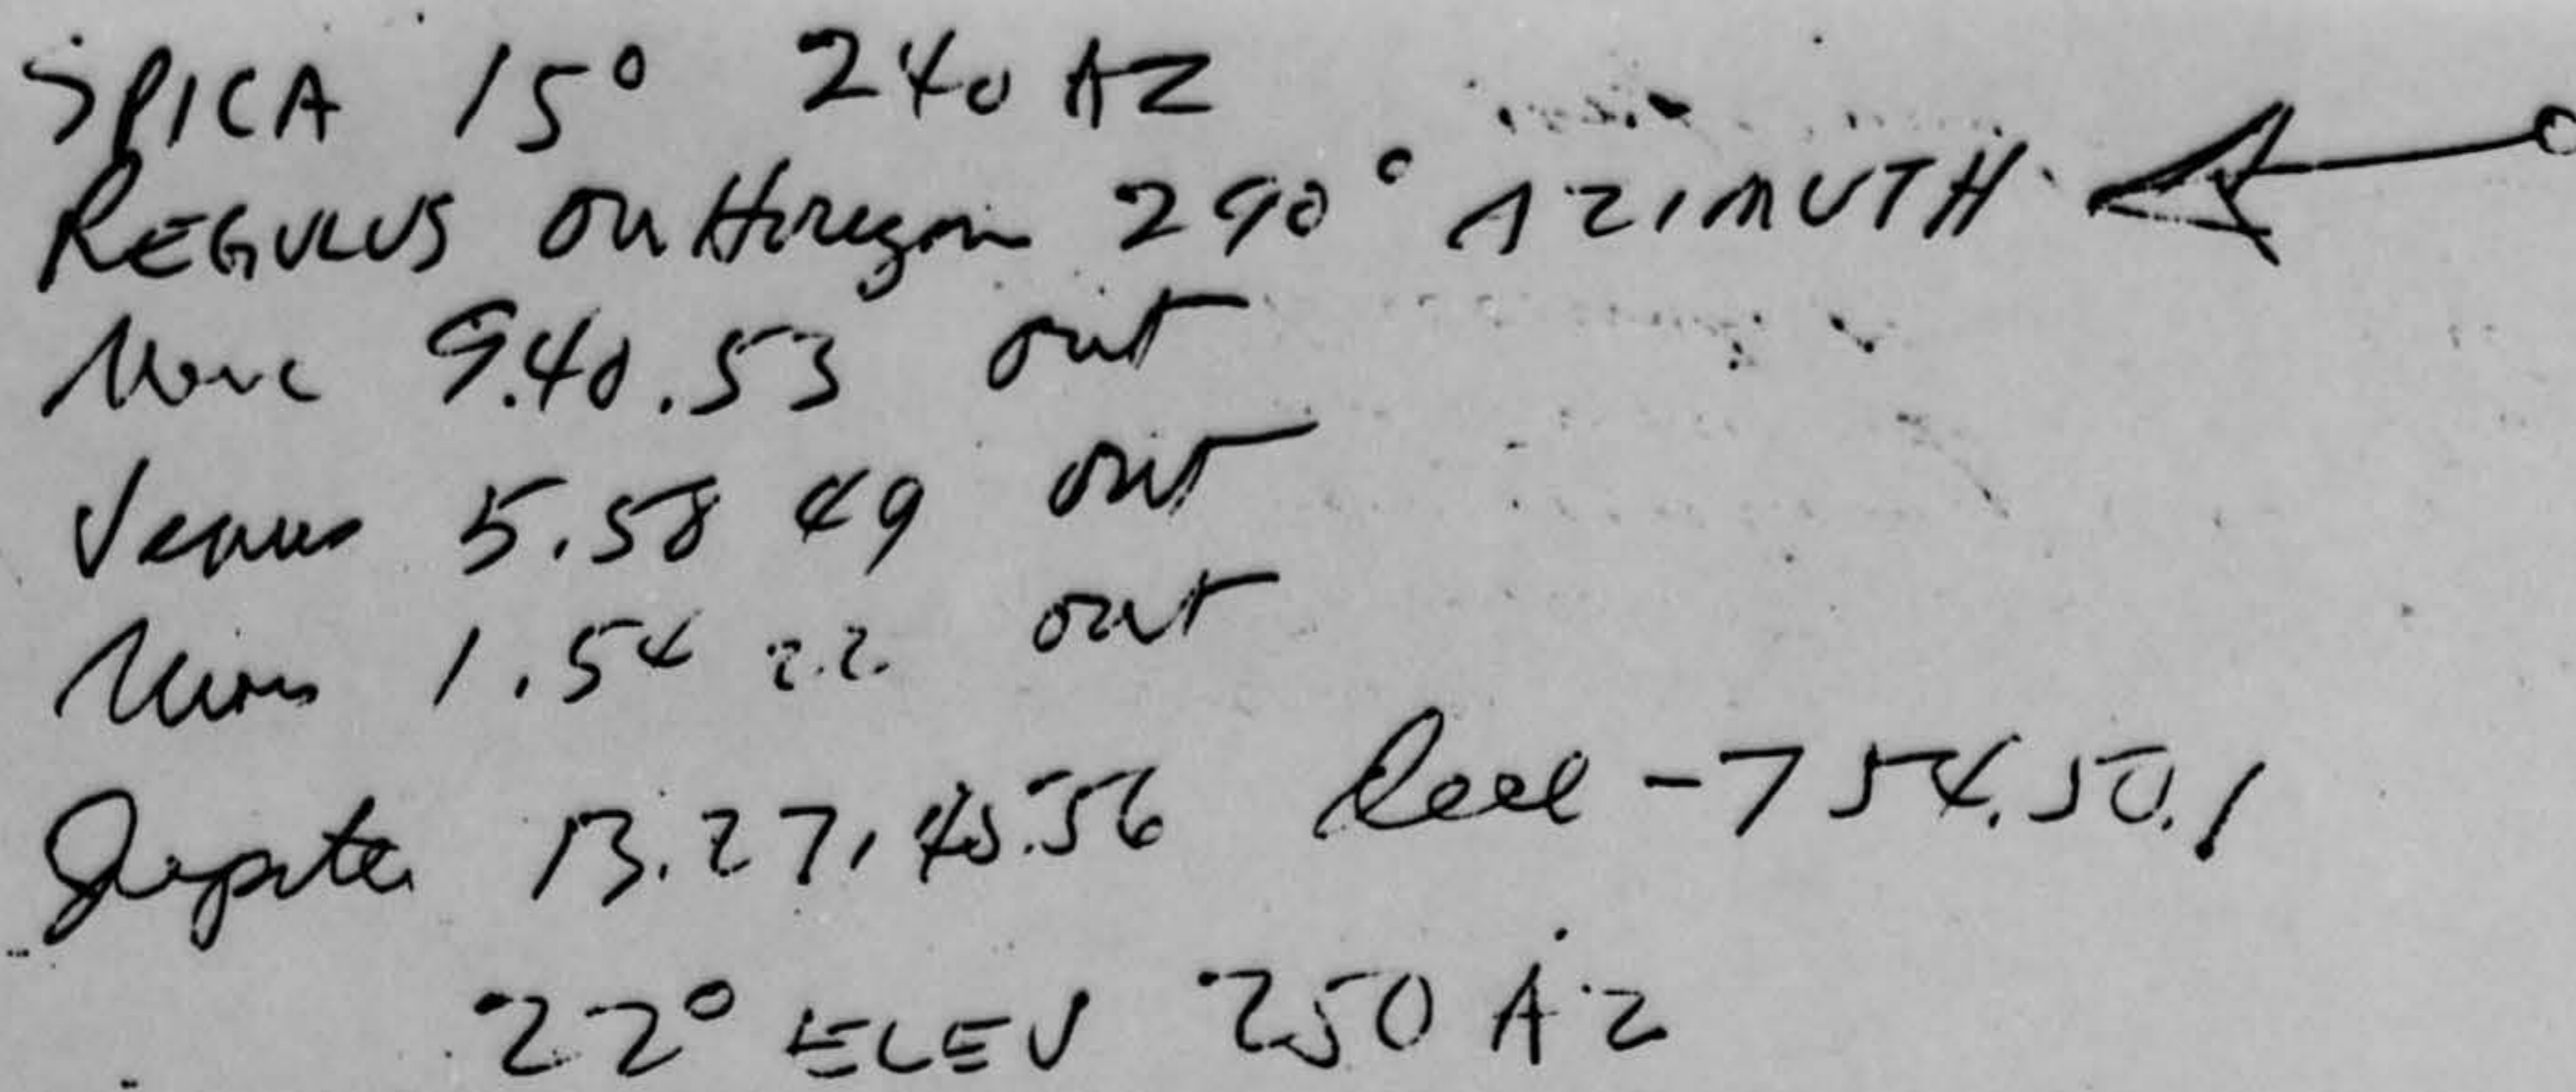 SPICA 15° 240 AZ
REGULUS on Horizon 290° AZIMUTH
Merc 9.40.53 out
Venus 5.58 49 out
Mars 1.54 22 out
Jupiter 13.27.45.56 Decl -7 54.50.1
22° ELEV 250 AZ